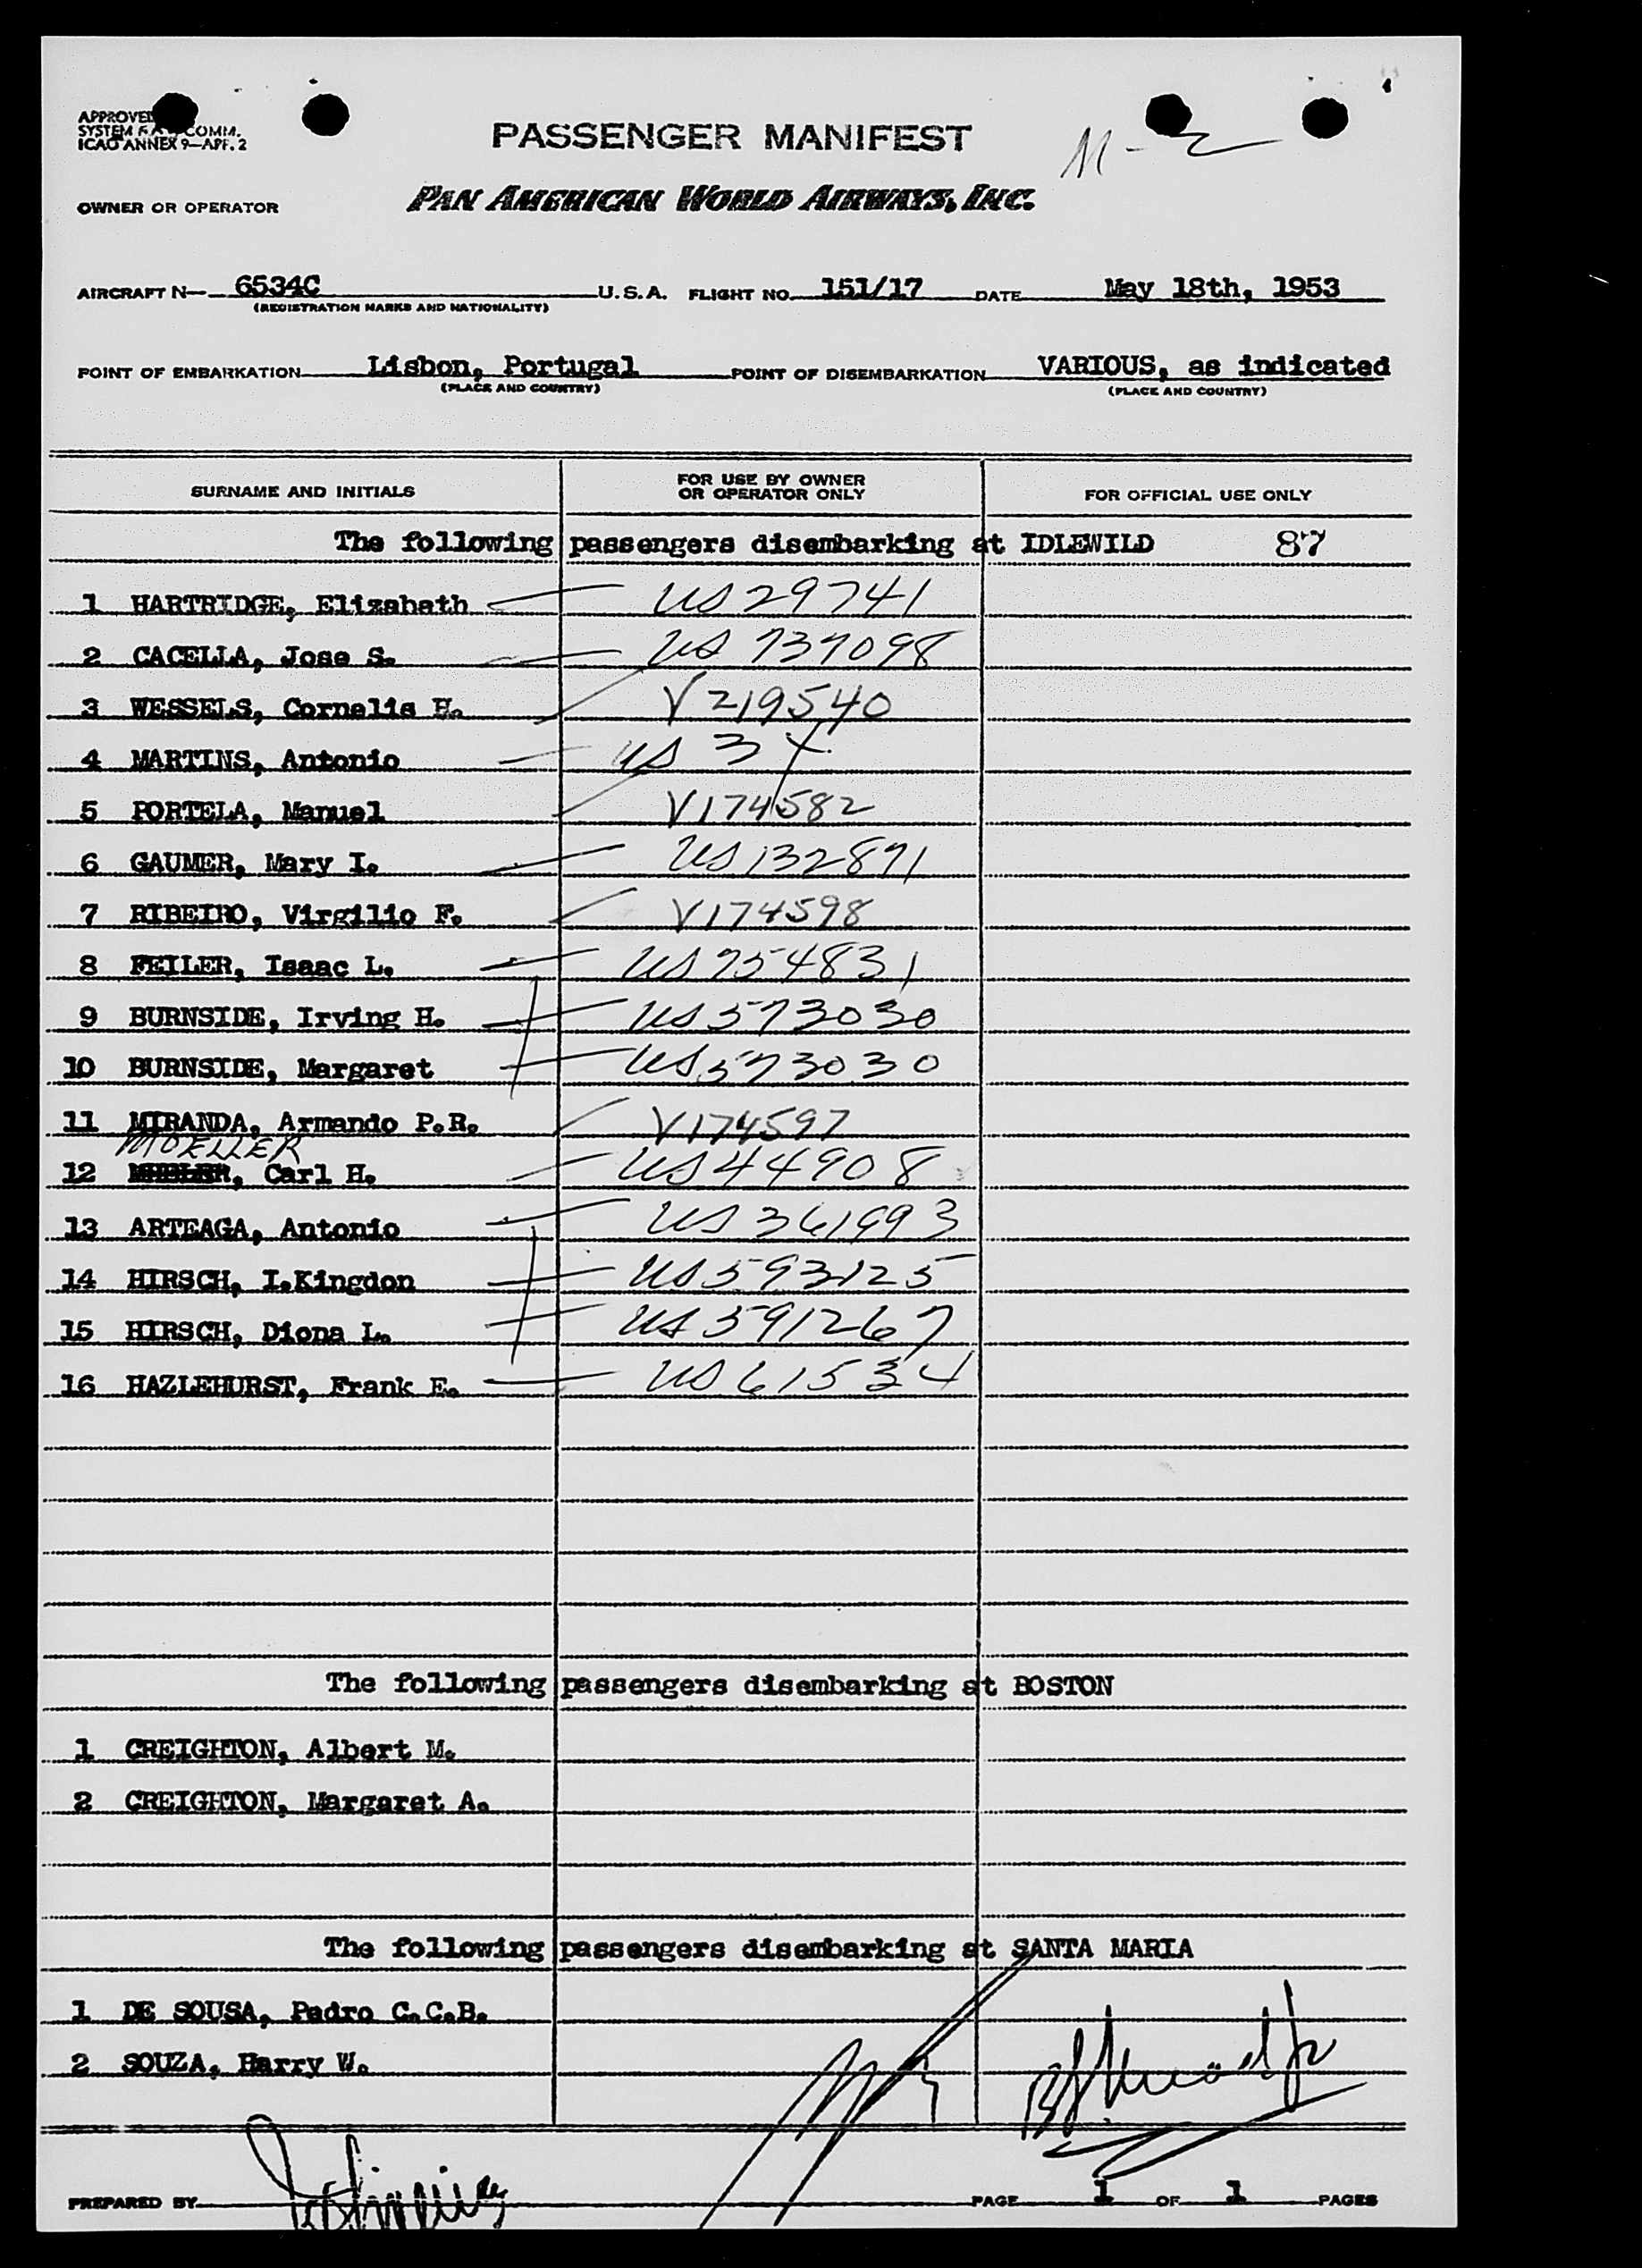 APPROVED
SYSTEM COMM.
ICAO ANNEX 9—APP. 2
PASSENGER MANIFEST
M-2
OWNER OR OPERATOR PAN AMERICAN WORLD AIRWAYS, INC.
AIRCRAFT N— 6534C U.S.A. FLIGHT NO. 151/17 DATE May 18th, 1953
(REGISTRATION MARKS AND NATIONALITY)
POINT OF EMBARKATION Lisbon, Portugal POINT OF DISEMBARKATION VARIOUS, as indicated
(PLACE AND COUNTRY) (PLACE AND COUNTRY)
SURNAME AND INITIALS FOR USE BY OWNER OR OPERATOR ONLY FOR OFFICIAL USE ONLY
The following passengers disembarking at IDLEWILD 87
1 HARTRIDGE, Elizabath US 29741
2 CACELLA, Jose S. US 737098
3 WESSELS, Cornelis H. V219540
4 MARTINS, Antonio US 3
5 PORTELA, Manuel V174582
6 GAUMER, Mary I. US 132871
7 RIBEIRO, Virgilio F. V174598
8 FEILER, Isaac L. US 754831
9 BURNSIDE, Irving H. US 573030
10 BURNSIDE, Margaret US 573030
11 MIRANDA, Armando P.R. V174597
MOELLER
12 Carl H. US 44908
13 ARTEAGA, Antonio US 361993
14 HIRSCH, I.Kingdon US 593125
15 HIRSCH, Diona L. US 591267
16 HAZLEHURST, Frank E. US 61534
The following passengers disembarking at BOSTON
1 CREIGHTON, Albert M.
2 CREIGHTON, Margaret A.
The following passengers disembarking at SANTA MARIA
1 DE SOUSA, Pedro C.C.B.
2 SOUZA, Harry W.
PREPARED BY PAGE 1 OF 1 PAGES